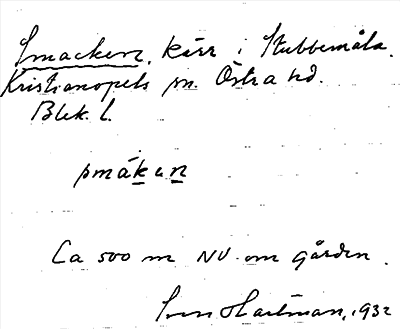 Smacken, kärr i Stubbemåla.
Kristianopels sn. Östra hd.
Blek. l.
smákun
Ca 500 m NV om gården.
Sven Hartman, 1932